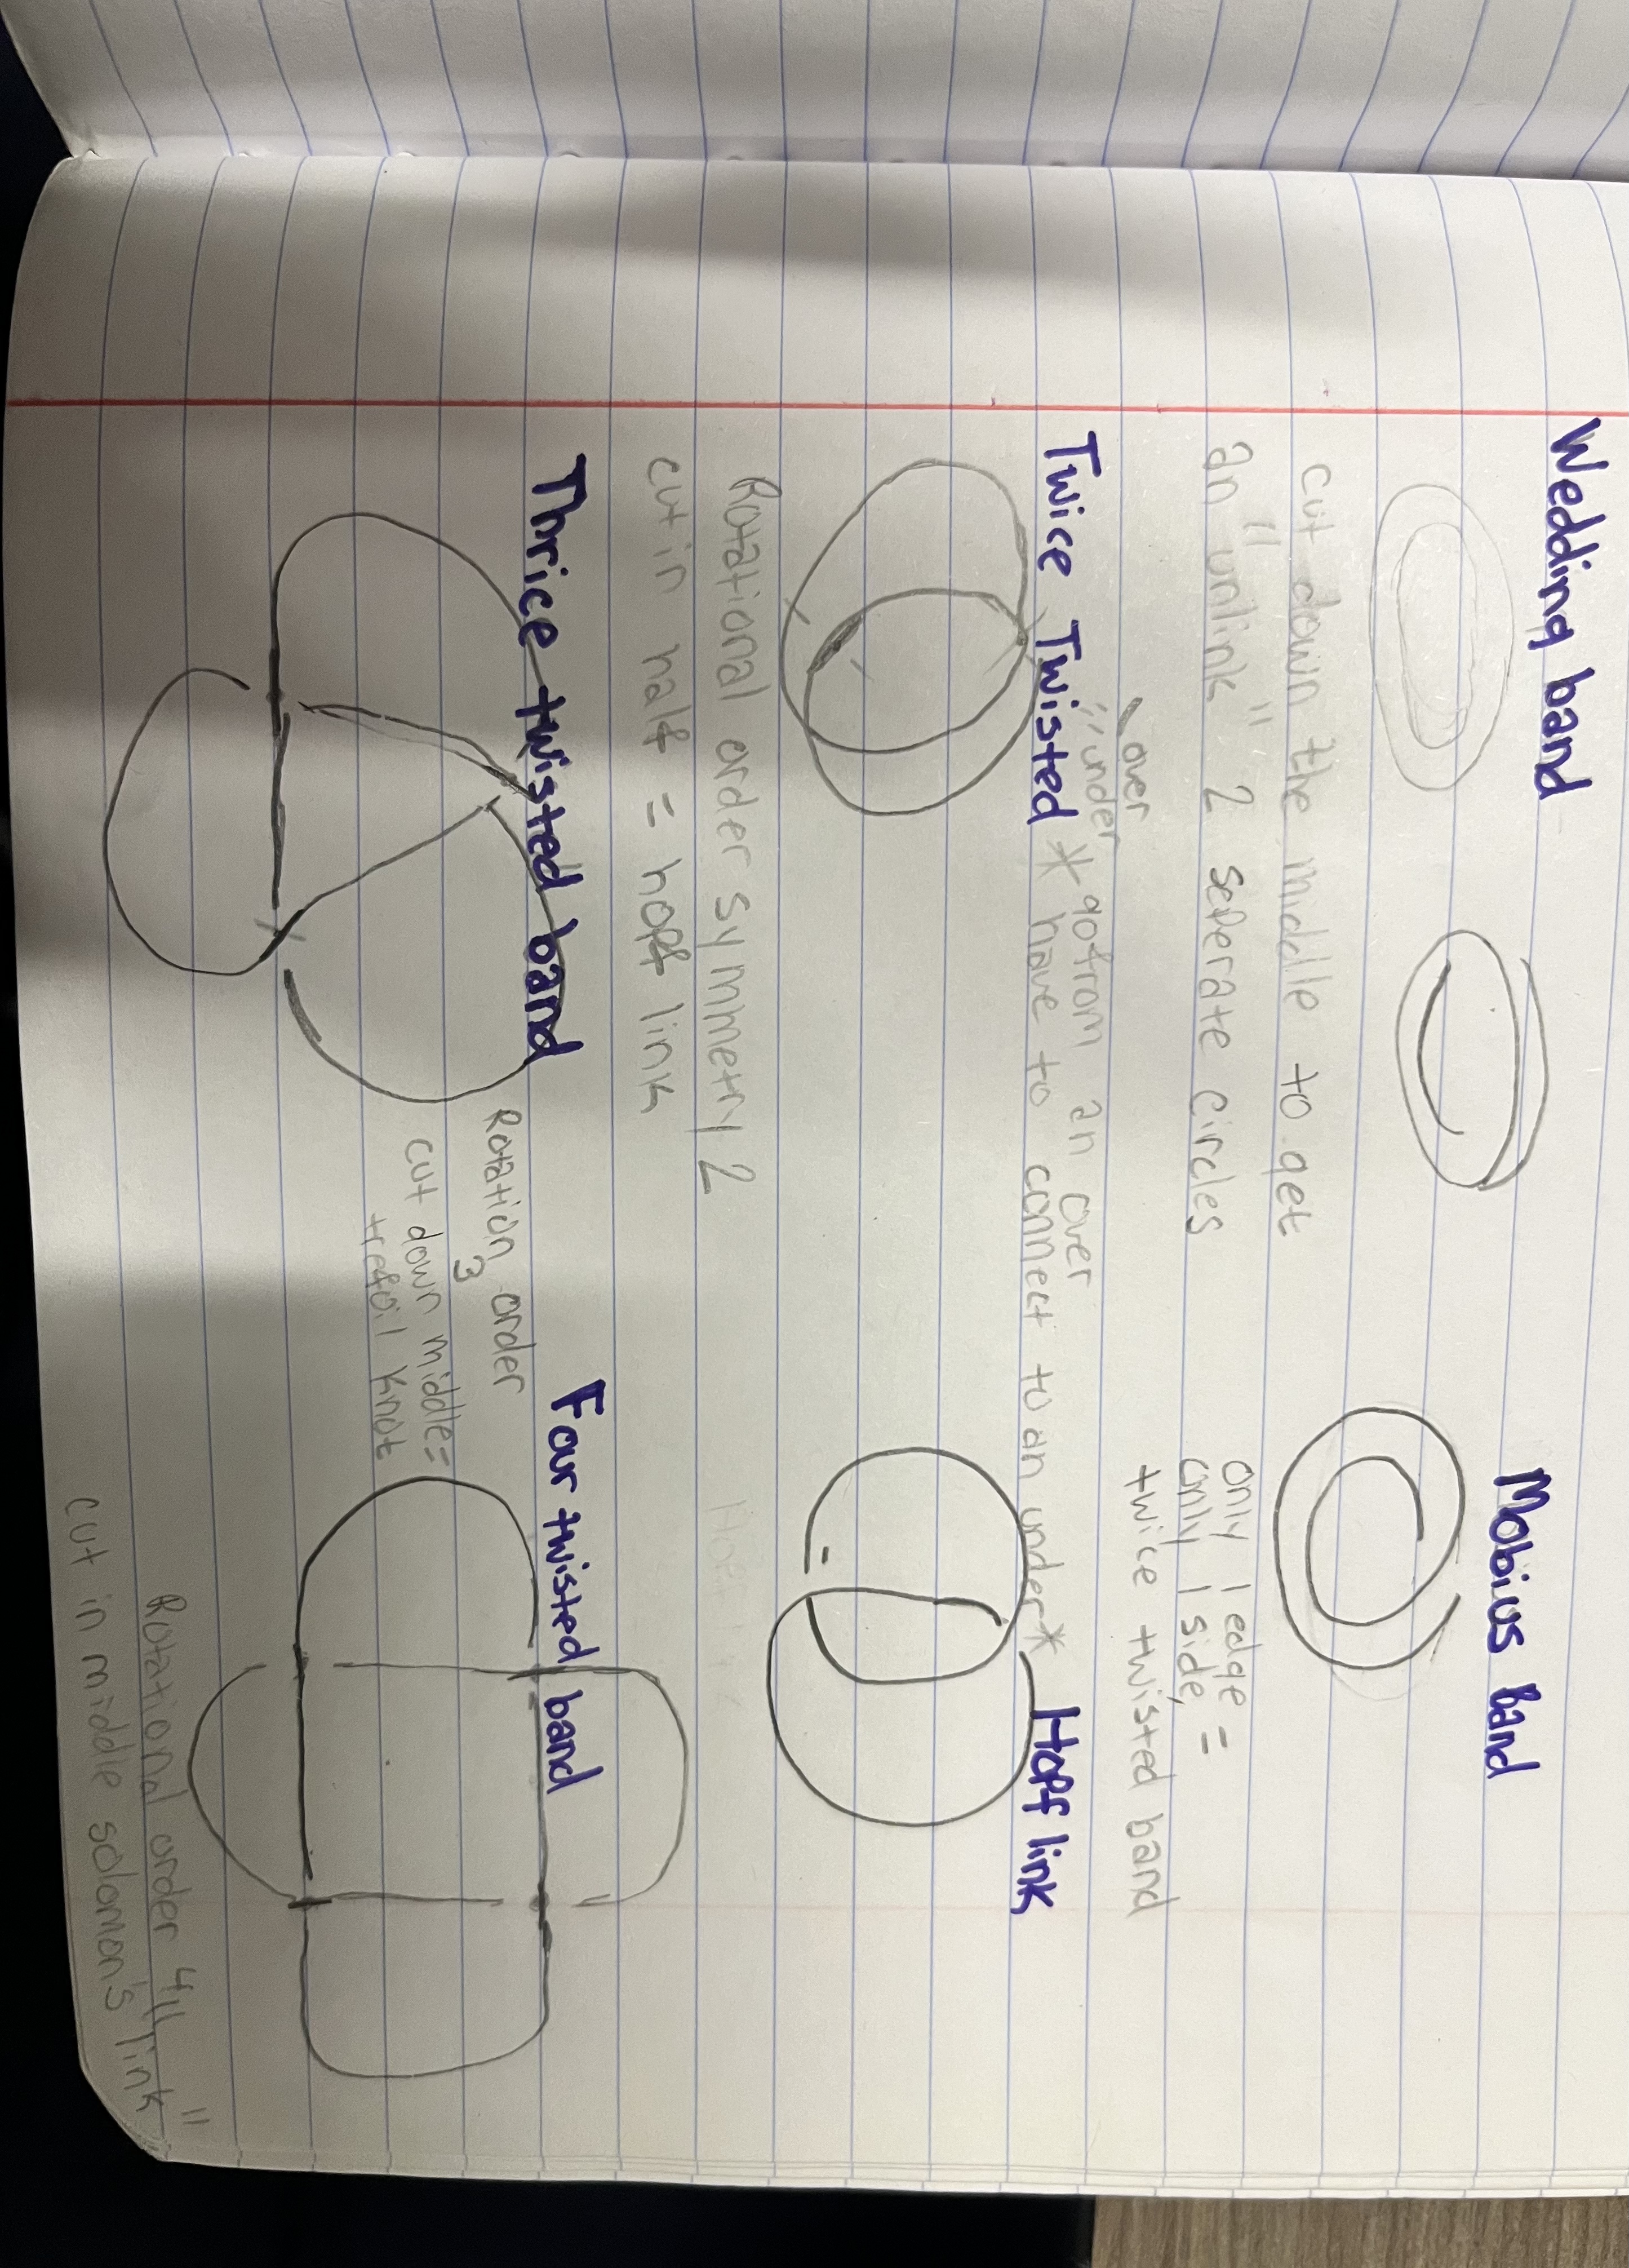 Wedding band
cut down the middle to get
an "unlink" 2 seperate circles
Mobius Band
only 1 edge =
only 1 side, =
twice twisted band
over
"under
Twice Twisted * go from an over
have to connect to an under*
Hopf link
Rotational order symmetry 2
cut in half = hopf link
Thrice twisted band
Rotation order
3
cut down middle =
trefoil knot
Four twisted band
Rotational order 4
cut in middle solomon's "link"